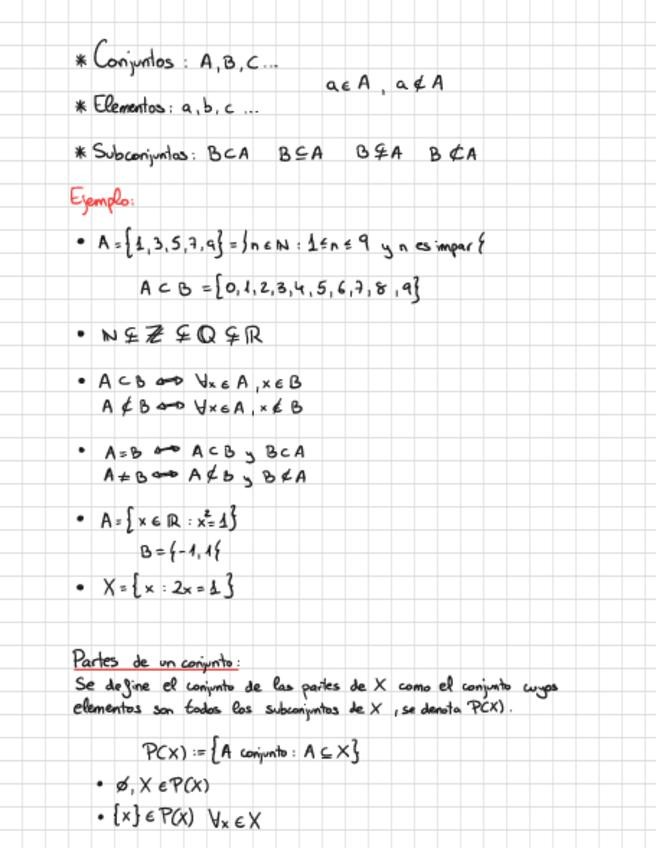 * Conjuntos : A, B, C ...
a ∈ A , a ∉ A
* Elementos: a, b, c ...
* Subconjuntos: B⊂A B⊆A B⊊A B⊄A
Ejemplo:
• A={1,3,5,7,9}=}n∈ℕ : 1≤n≤9 y n es impar{
A ⊂ B ={0,1,2,3,4,5,6,7,8,9}
• ℕ⊊ℤ⊊ℚ⊊ℝ
• A⊂B ⟺ ∀x∈A, x∈B
A⊄B ⟺ ∀x∈A, x∉B
• A=B ⟺ A⊂B y B⊂A
A≠B ⟺ A⊄B y B⊄A
• A={x∈ℝ : x²=1}
B={-1,1{
• X={x : 2x=1}
Partes de un conjunto:
Se define el conjunto de las partes de X como el conjunto cuyos
elementos son todos los subconjuntos de X , se denota P(X).
P(X) := {A conjunto : A⊆X}
• ∅, X ∈ P(X)
• {x} ∈ P(X) ∀x ∈ X